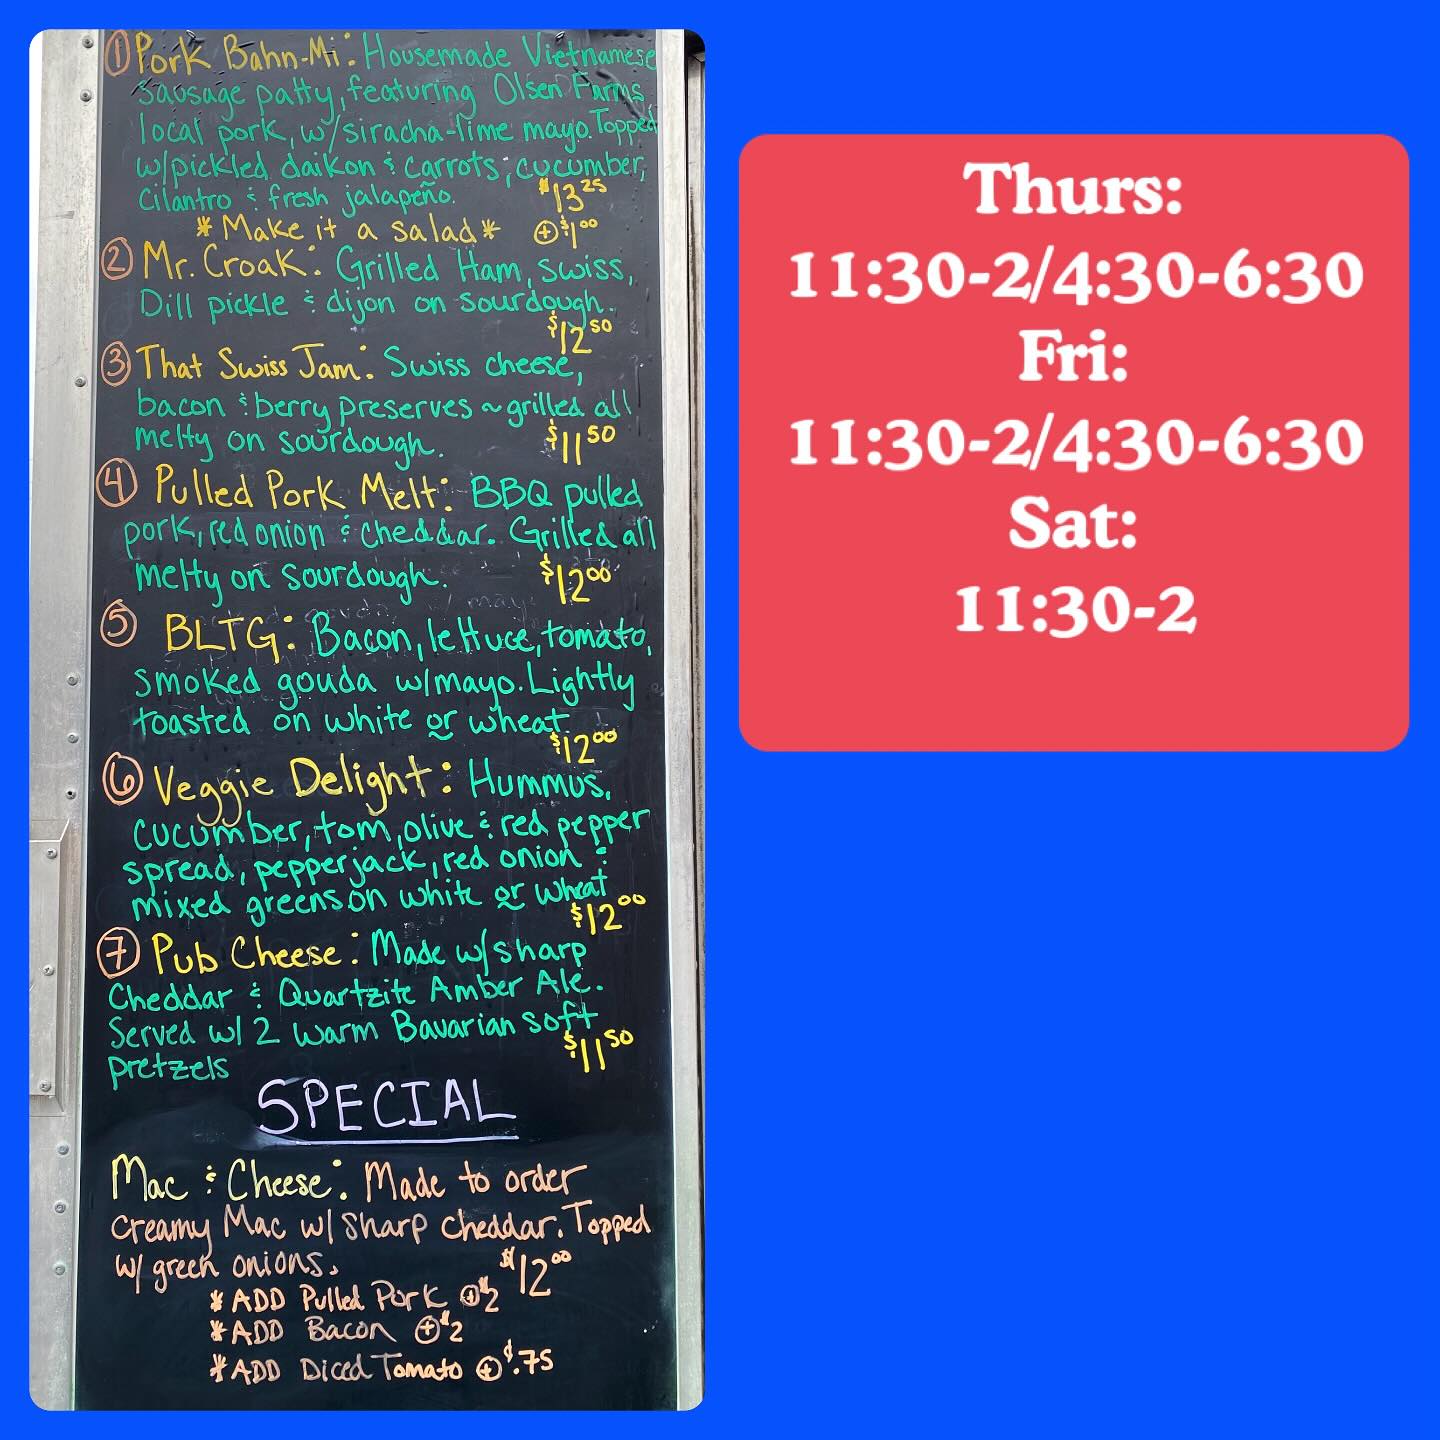 ① Pork Bahn-Mi: Housemade Vietnamese
sausage patty, featuring Olsen Farms
local pork, w/siracha-lime mayo. Topped
w/pickled daikon & carrots, cucumber,
cilantro & fresh jalapeño. $13.25
*Make it a salad* ⊕$1.00
② Mr. Croak: Grilled Ham, swiss,
Dill pickle & dijon on sourdough.
$12.50
③ That Swiss Jam: Swiss cheese,
bacon & berry preserves ~ grilled all
melty on sourdough. $11.50
④ Pulled Pork Melt: BBQ pulled
pork, red onion & cheddar. Grilled all
melty on sourdough. $12.00
⑤ BLTG: Bacon, lettuce, tomato,
smoked gouda w/mayo. Lightly
toasted on white or wheat
$12.00
⑥ Veggie Delight: Hummus,
cucumber, tom, olive & red pepper
spread, pepperjack, red onion &
mixed greens on white or wheat
$12.00
⑦ Pub Cheese: Made w/sharp
Cheddar & Quartzite Amber Ale.
Served w/ 2 warm Bavarian soft
pretzels $11.50
SPECIAL
Mac & Cheese: Made to order
creamy Mac w/ sharp cheddar. Topped
w/ green onions. $12.00
*ADD Pulled Pork ⊕$2
*ADD Bacon ⊕$2
*ADD Diced Tomato ⊕$.75
Thurs:
11:30-2/4:30-6:30
Fri:
11:30-2/4:30-6:30
Sat:
11:30-2